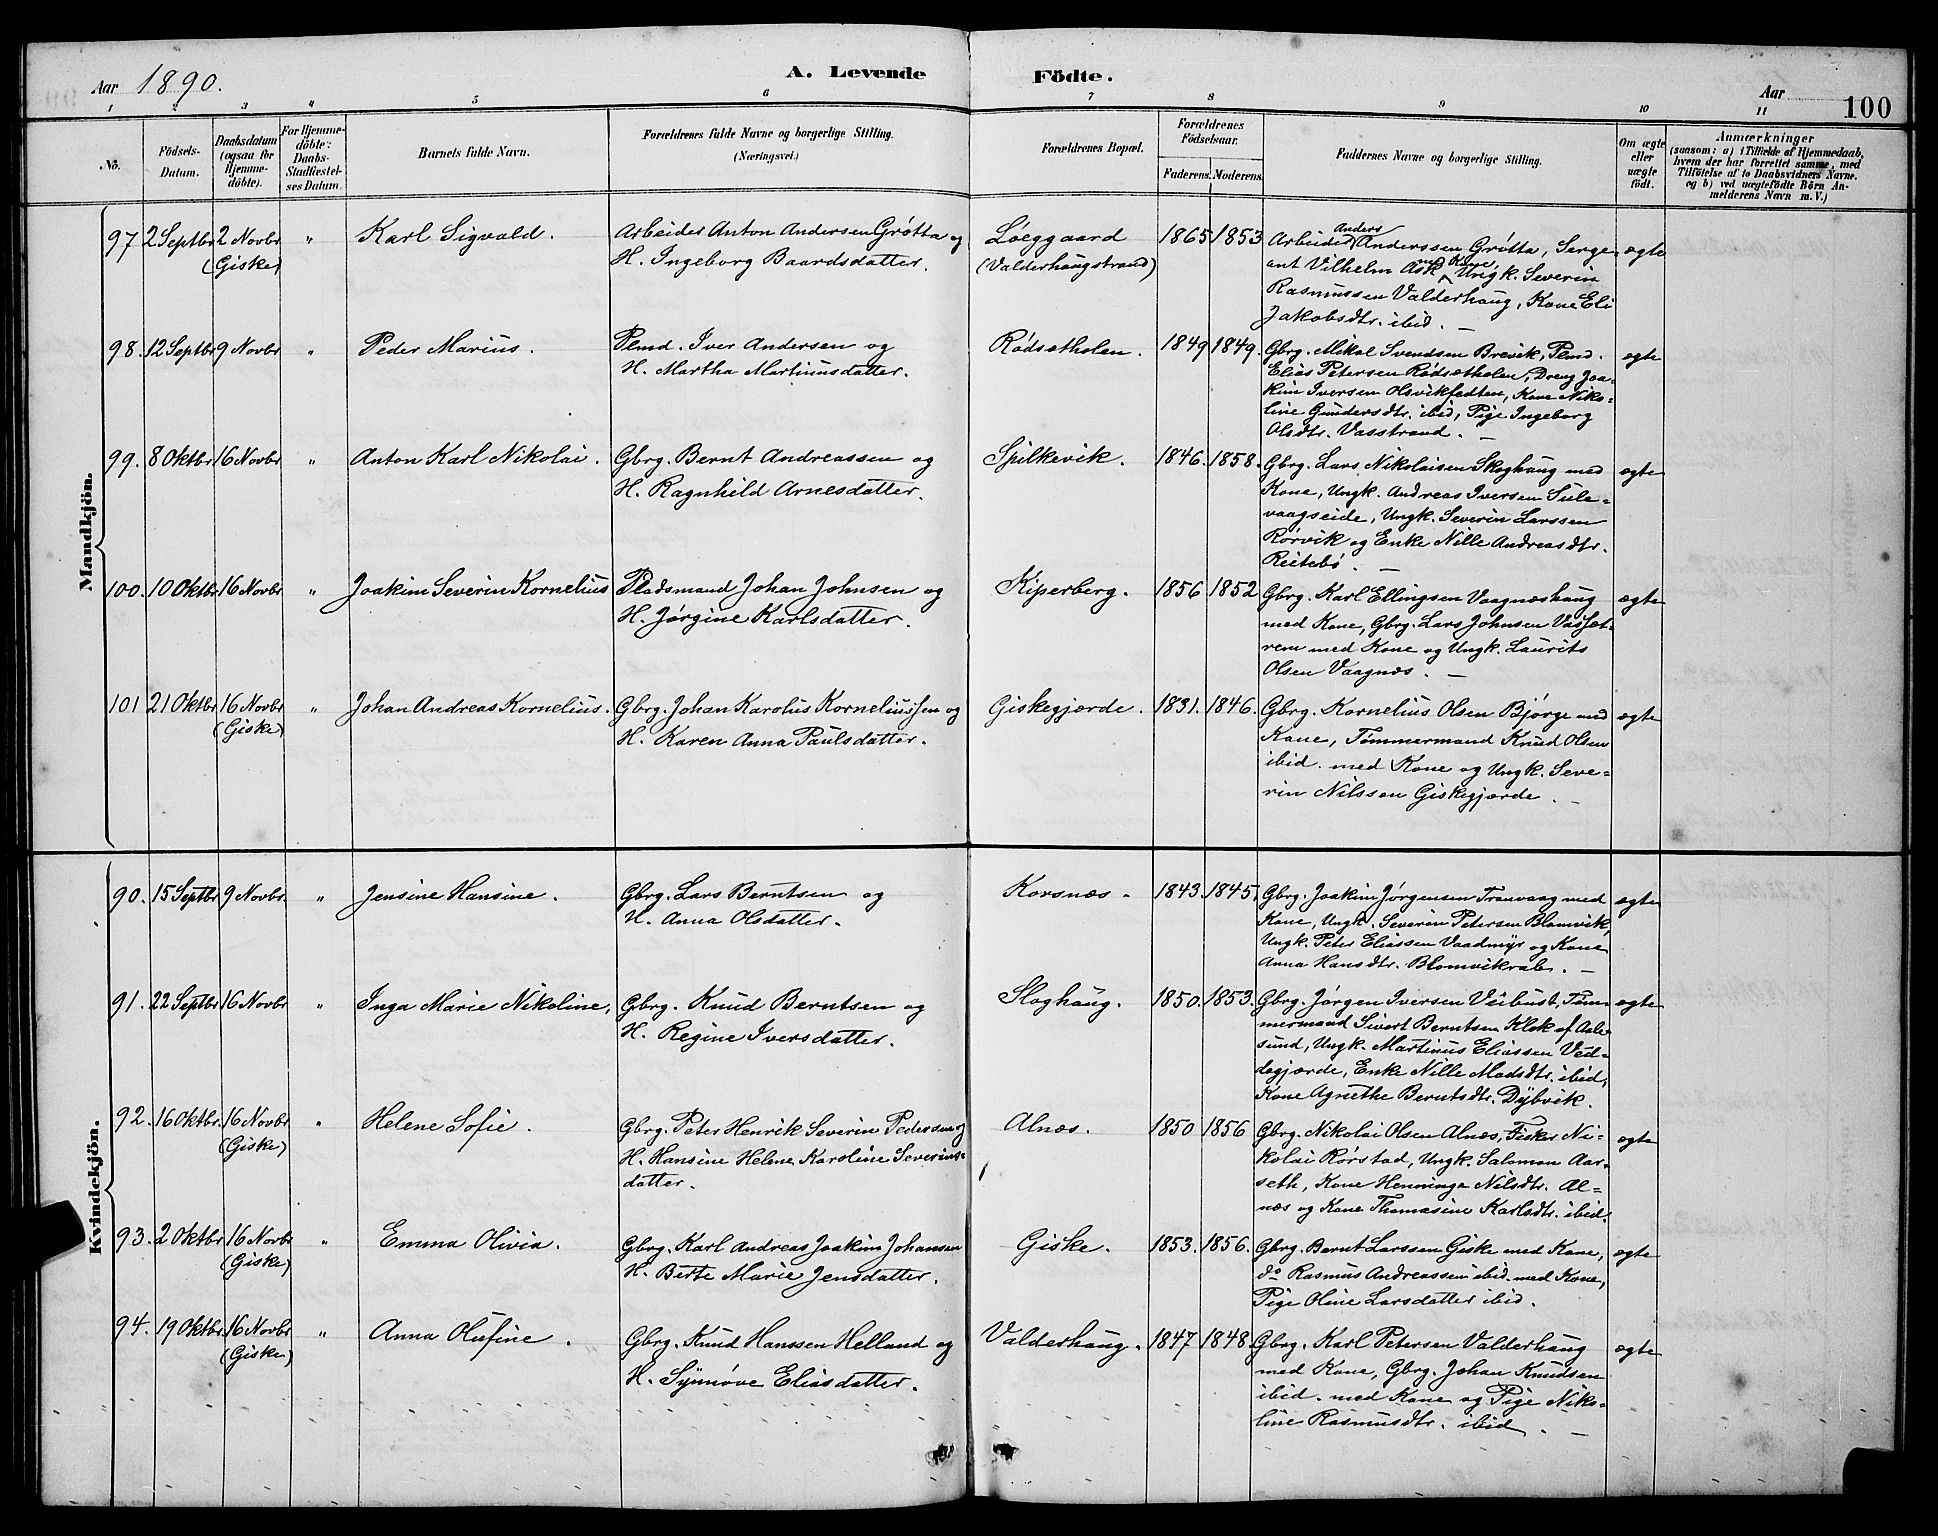 Aar 1890. A. Levende Födte. Aar 100
1 2 3 4 5 6 7 8 9 10 11
No. Födsels-Datum. Daabsdatum (ogsaa för Hjemme-döbte). For Hjemme-döbte: Daabs-Stadfæstel-ses Datum. Barnets fulde Navn. Forældrenes fulde Navne og borgerlige Stilling. (Næringsvei.) Forældrenes Bopæl. Forældrenes Födselsaar. Faderens. Moderens. Faddernes Navne og borgerlige Stilling. Om ægte eller uægte födt. Anmærkninger
(saasom: a) i Tilfælde af Hjemmedaab,
hvem der har forrettet samme, med
Tilföielse af to Daabsvidners Navne.
og b) ved uægtefödte Börn An-
melderens Navn m. V.)
Mandkjön.
97 2 Septbr 2 Novbr (Giske) " Karl Sigvald.
Arbeider Anton Andersen Grøtta og
H. Ingeborg Baardsdatter.
Løeggaard
(Valderhaugstrand)
1865 1853
Arbeider Anders Anderssen Grøtta, Serge-
ant Vilhelm Ask med Kone, Ungk. Severin
Rasmussen Valderhaug, Kone Eli
Jakobsdtr. ibid. —
ægte
98. 12 Septbr 9 Novbr " Peder Marius.
Plmd. Iver Andersen og
H. Martha Martinusdatter.
Rødsætholen.
1849 1849.
Gbrg. Mikal Svendsen Brevik, Plmd.
Elias Petersen Rødsætholen, Dreng Joa-
kim Iversen Olsvikfedten, Kone Niko-
line Gundersdtr. ibid, Pige Ingeborg
Olsdtr. Vasstrand. —
ægte
99. 8 Oktbr 16 Novbr " Anton Karl Nikolai.
Gbrg. Bernt Andreassen og
H. Ragnhild Arnesdatter.
Spilkevik.
1846. 1858.
Gbrg. Lars Nikolaisen Skoghaug med
Kone, Ungk. Andreas Iversen Sule-
vaagseide, Ungk. Severin Larssen
Rørvik og Enke Nille Andreasdtr.
Reitebø. —
ægte
100. 10 Oktbr 16 Novbr " Joakim Severin Kornelius
Pladsmand Johan Johnsen og
H. Jørgine Karlsdatter.
Kiperberg.
1856 1852
Gbrg. Karl Ellingsen Vaagnæshaug
med Kone, Gbrg. Lars Johnsen Vassæt-
rem med Kone og Ungk. Laurits
Olsen Vaagnæs. —
ægte
101 21 Oktbr 16 Novbr (Giske) " Johan Andreas Kornelius.
Gbrg. Johan Karolus Korneliussen og
H. Karen Anna Paulsdatter.
Giskegjærde.
1831. 1846.
Gbrg. Kornelius Olsen Bjørge med
Kone, Tømmermand Knud Olsen
ibid. med Kone og Ungk. Seve-
rin Nilssen Giskegjærde. —
ægte
Kvindekjön.
90. 15 Septbr 9 Novbr. " Jensine Hansine.
Gbrg. Lars Berntsen og
H. Anna Olsdatter.
Korsnæs.
1843. 1845.
Gbrg. Joakim Jørgensen Tranvaag med
Kone, Ungk. Severin Petersen Blomvik,
Ungk. Peter Eliassen Vaadmyr og Kone
Anna Hansdtr. Blomvikrab. —
ægte
91. 22 Septbr 16 Novbr " Inga Marie Nikoline,
Gbrg. Knud Berntsen og
H. Regine Iversdatter.
Sloghaug.
1850. 1853.
Gbrg. Jørgen Iversen Veibust, Tøm-
mermand Sivert Berntsen Klok af Aale-
sund, Ungk. Martinus Eliassen Ved-
degjærde, Enke Nille Madsdtr. ibid,
Kone Agnethe Berntsdtr. Dybvik.
ægte
92. 16 Oktbr. 16 Novbr (Giske) " Helene Sofie.
Gbrg. Peter Henrik Severin Pedersen og
H. Hansine Helene Karoline Severins-
datter.
Alnæs.
1850 1856
Gbrg. Nikolai Olsen Alnæs, Fisker Ni-
kolai Rørstad, Ungk. Salomon Aar-
seth, Kone Henninge Nilsdtr. Al-
næs og Kone Thomasine Karlsdtr. ibid.
ægte
93. 2 Oktbr 16 Novbr (Giske) " Emma Olivia.
Gbrg. Karl Andreas Joakim Johansen
H. Berte Marie Jensdatter.
Giske.
1853. 1856.
Gbrg. Bernt Larssen Giske med Kone,
do Rasmus Andreassen ibid. med Kone,
Pige Oline Larsdatter ibid.
ægte
94. 19 Oktbr 16 Novbr (Giske) " Anna Olufine.
Gbrg. Knud Hanssen Helland og
H. Synnøve Eliasdatter.
Valderhaug.
1847 1848.
Gbrg. Karl Petersen Valderhaug
med Kone, Gbrg. Johan Knudsen
ibid. med Kone og Pige Niko-
line Rasmusdtr. ibid. —
ægte